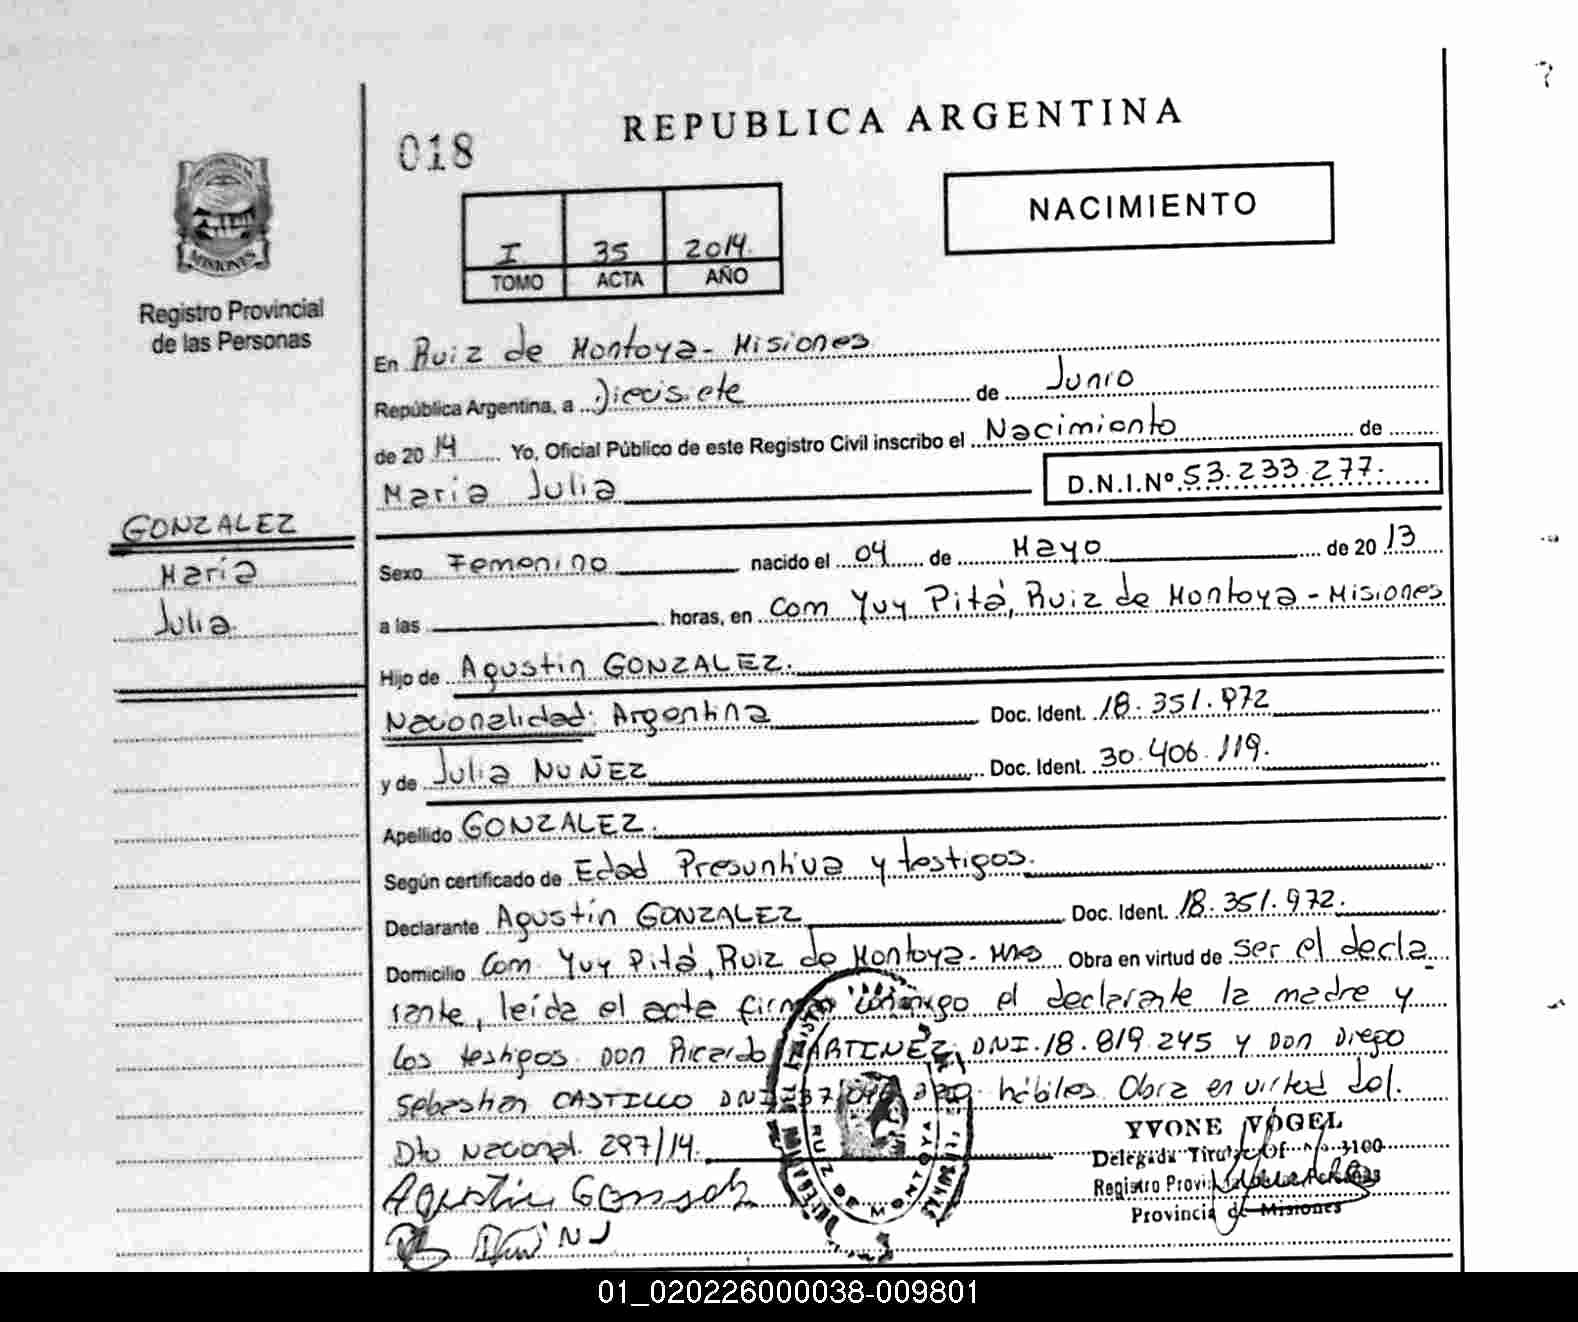 REPUBLICA ARGENTINA
018
NACIMIENTO
I 35 2014
TOMO ACTA AÑO
MISIONES
Registro Provincial
de las Personas
En Ruiz de Montoya - Misiones
República Argentina, a Diecisiete de Junio
de 2014 Yo, Oficial Público de este Registro Civil inscribo el Nacimiento de
María Julia D.N.I.Nº 53.233.277.
GONZALEZ
María
Julia
Sexo Femenino nacido el 04 de Mayo de 2013
a las horas, en Com Yvy Pitá, Ruiz de Montoya - Misiones
Hijo de Agustín GONZALEZ.
Nacionalidad: Argentina Doc. Ident. 18.351.972
y de Julia NUÑEZ Doc. Ident. 30.406.119.
Apellido GONZALEZ.
Según certificado de Edad Presuntiva y testigos.
Declarante Agustín GONZALEZ Doc. Ident. 18.351.972.
Domicilio Com Yvy Pitá, Ruiz de Montoya. Mnes Obra en virtud de ser el decla
rante, leída el acta firman conmigo el declarante la madre y
los testigos Don Ricardo MARTINEZ, DNI.18.819.245 y Don Diego
Sebastian CASTILLO DNI hábiles. Obra en virtud del.
Dto Nacional. 297/14.
YVONE VOGEL
Delegada Titular Of 3100
Registro Provincial de las Personas
Provincia de Misiones
RUIZ DE MONTOYA
01_020226000038-009801